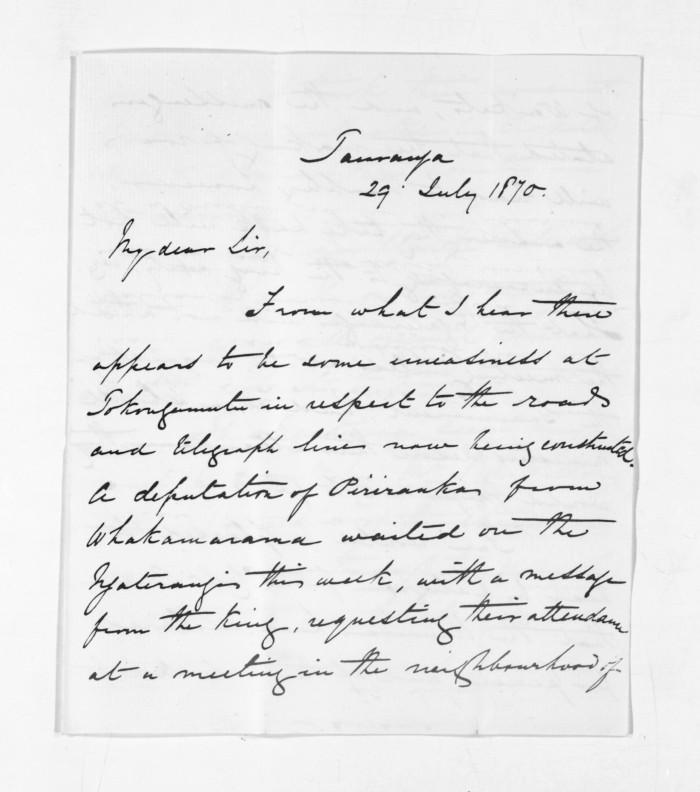 Tauranga
29 July 1870.
My dear Sir,
From what I hear there
appears to be some uneasiness at
Tokangamutu in respect to the roads
and telegraph lines now being constructed.
A deputation of Piriraukas from
Whakamarama waited on the
Ngaterangis this week, with a message
from the King, requesting their attendance
at a meeting in the neighbourhood of